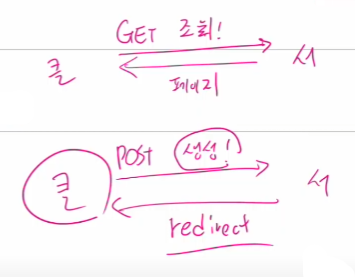 GET 조회!
클 서
페이지
POST 생성!
클 서
redirect